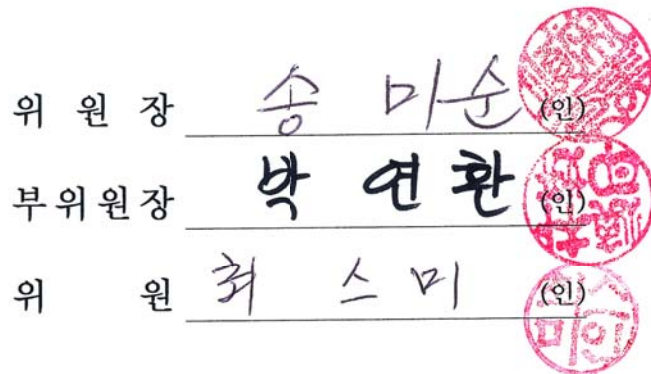 위 원 장 송 미순 (인)
부위원장 박 연환 (인)
위 원 최 스미 (인)